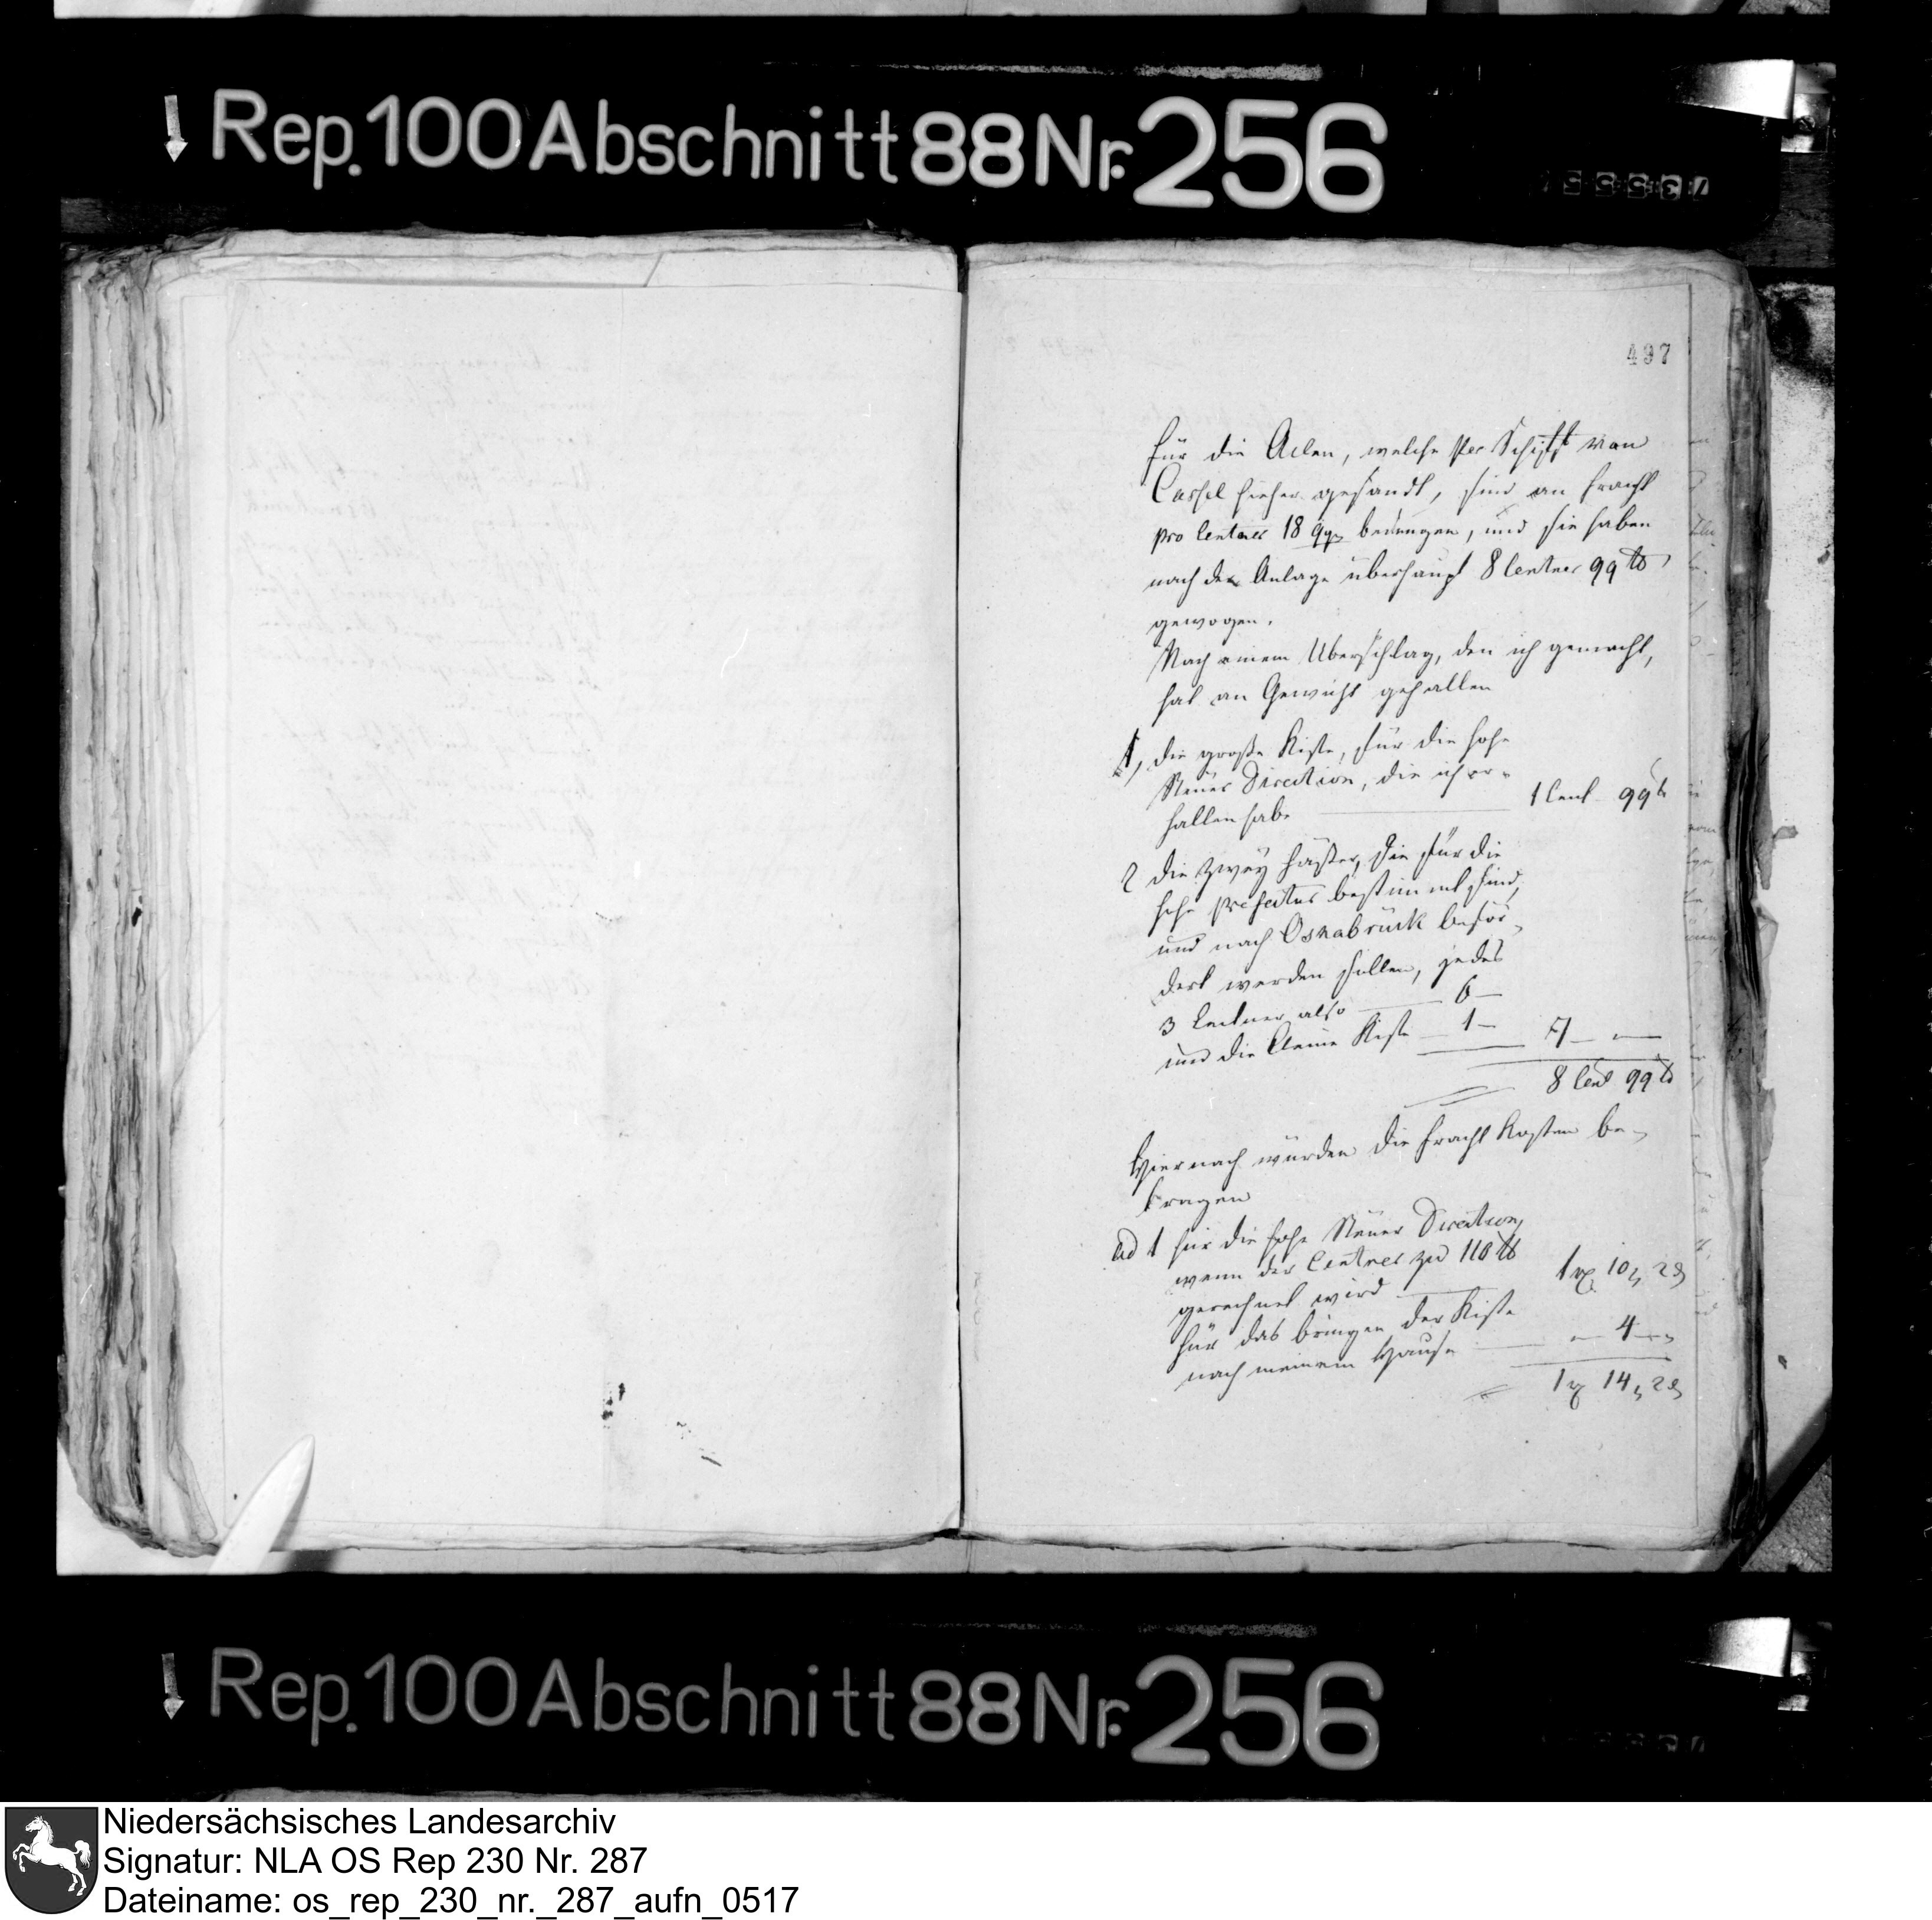 Rep. 100 Abschnitt 88 Nr. 256
497
für die Acten, welche per Schiff von
Cassel hieher gesandt, sind an Fracht
pro Centner 18 ggr bedungen, und sie haben
nach der Anlage überhaupt 8 Centner 99 ℔
gewogen.
Nach einem Überschlag, den ich gemacht,
hat an Gewicht gehalten
1, die große Kiste, für die hohe
Steuer Direction, die ich er-
halten habe 1 Cent 99 ℔
2 die zwey Fäßer, die für die
hohe Prefectur bestimmt sind,
und nach Osnabrück beför-
dert werden sollen, jedes
3 Centner also — 6 —
und die kleine Kiste — 1 — 7 — —
8 Cent 99 ℔
Hiernach würden die Fracht Kosten be-
tragen
ad 1 für die hohe Steuer Direction,
wenn der Centner zu 110 ℔
gerechnet wird 1 rt 10, 2 ₰
für das bringen der Kiste
nach meinem Hause — 4 —
1 rt 14, 2 ₰
Rep. 100 Abschnitt 88 Nr. 256
Niedersächsisches Landesarchiv
Signatur: NLA OS Rep 230 Nr. 287
Dateiname: os_rep_230_nr._287_aufn_0517